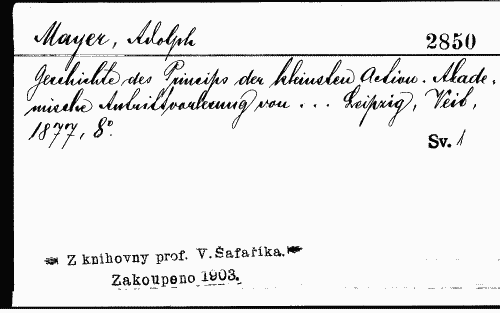 Mayer, Adolph
2850
Geschichte des Princips der kleinsten Action. Akade-
mische Antrittsvorlesung von ... Leipzig, Veit,
1877, 8°.
Sv. 1
Z knihovny prof. V. Šafaříka.
Zakoupeno 1903.